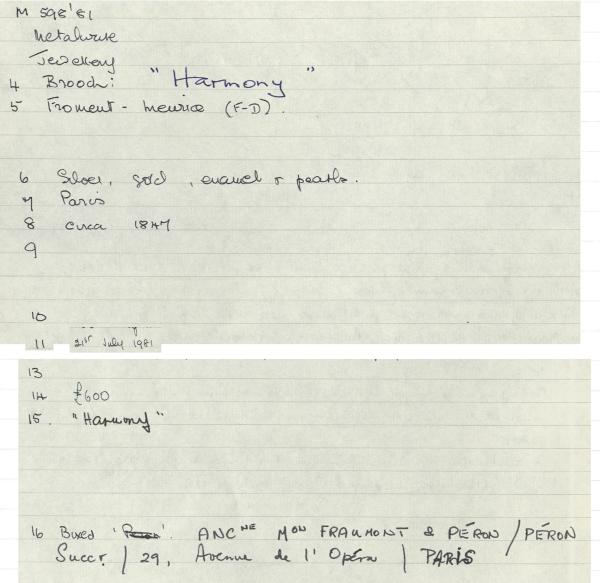 M 598'81
Metalwork
Jewellery
4 Brooch: "Harmony"
5 Froment-Meurice (F-D).
6 Silver, gold, enamel & pearls.
7 Paris
8 circa 1847
9
10
11 21st July 1981
13
14 £600
15. "Harmony"
16 Boxed '. ANCNE MON FRAUMONT & PÉRON / PÉRON
Succr. / 29, Avenue de l'Opéra / PARIS